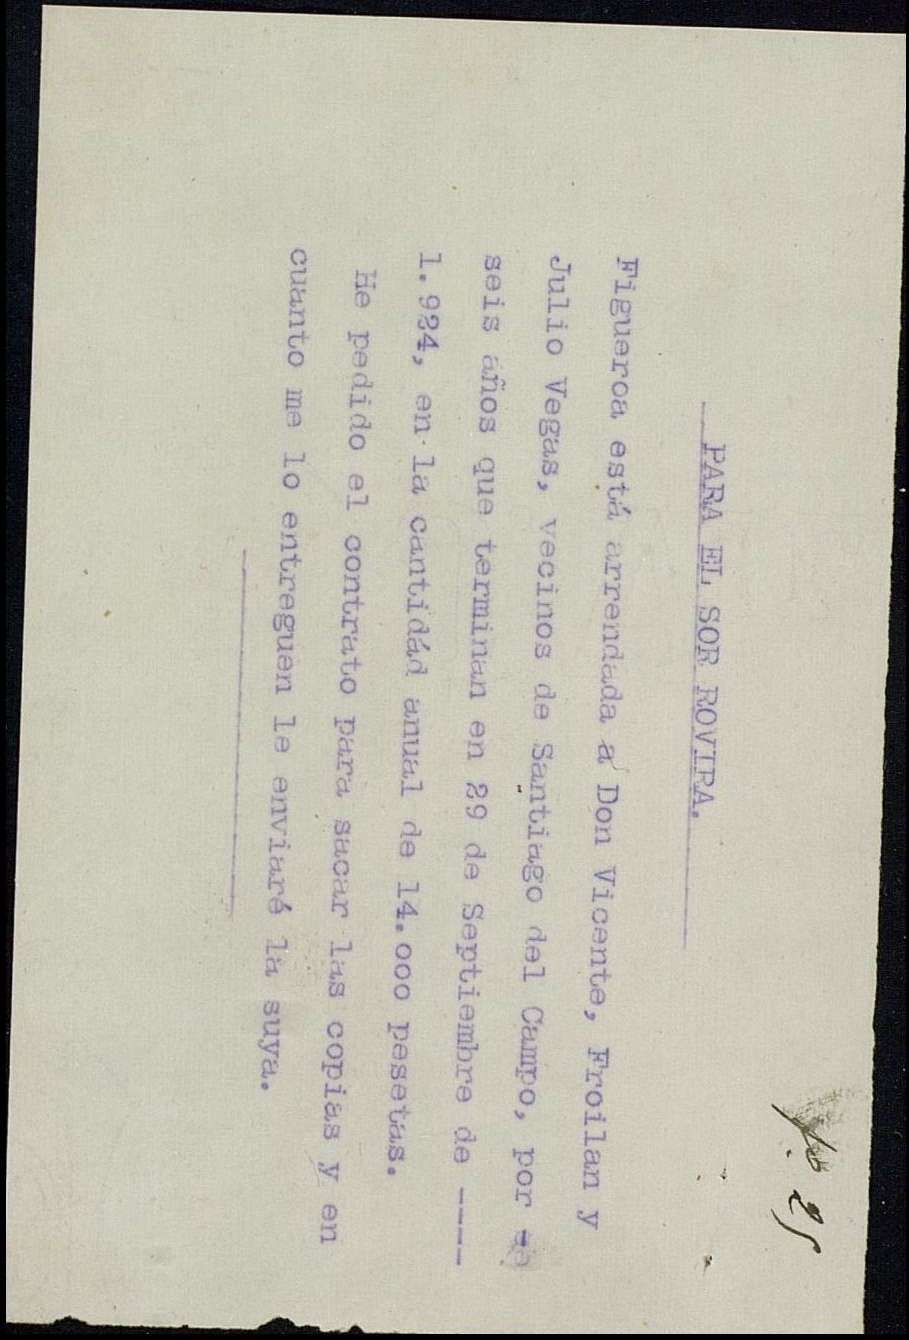 PARA EL SOR ROVIRA.
Figueroa está arrendada a Don Vicente, Froilan y
Julio Vegas, vecinos de Santiago del Campo, por
seis años que terminan en 29 de Septiembre de ----
1.924, en la cantidád anual de 14.000 pesetas.
He pedido el contrato para sacar las copias y en
cuanto me lo entreguen le enviaré la suya.